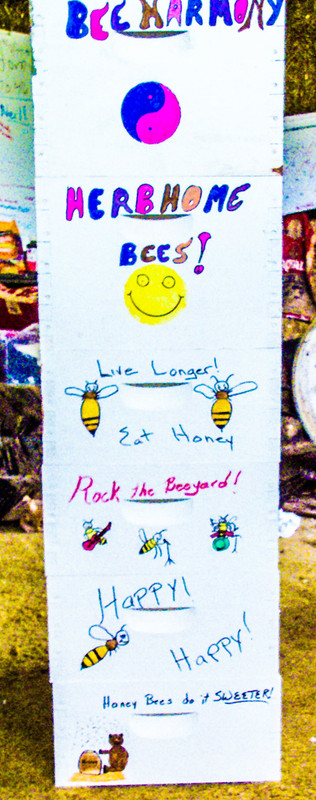 BEE HARMONY
HERBHOME
BEES!
Live Longer!
Eat Honey
Rock the Beeyard!
Happy!
Happy!
Honey Bees do it SWEETER!